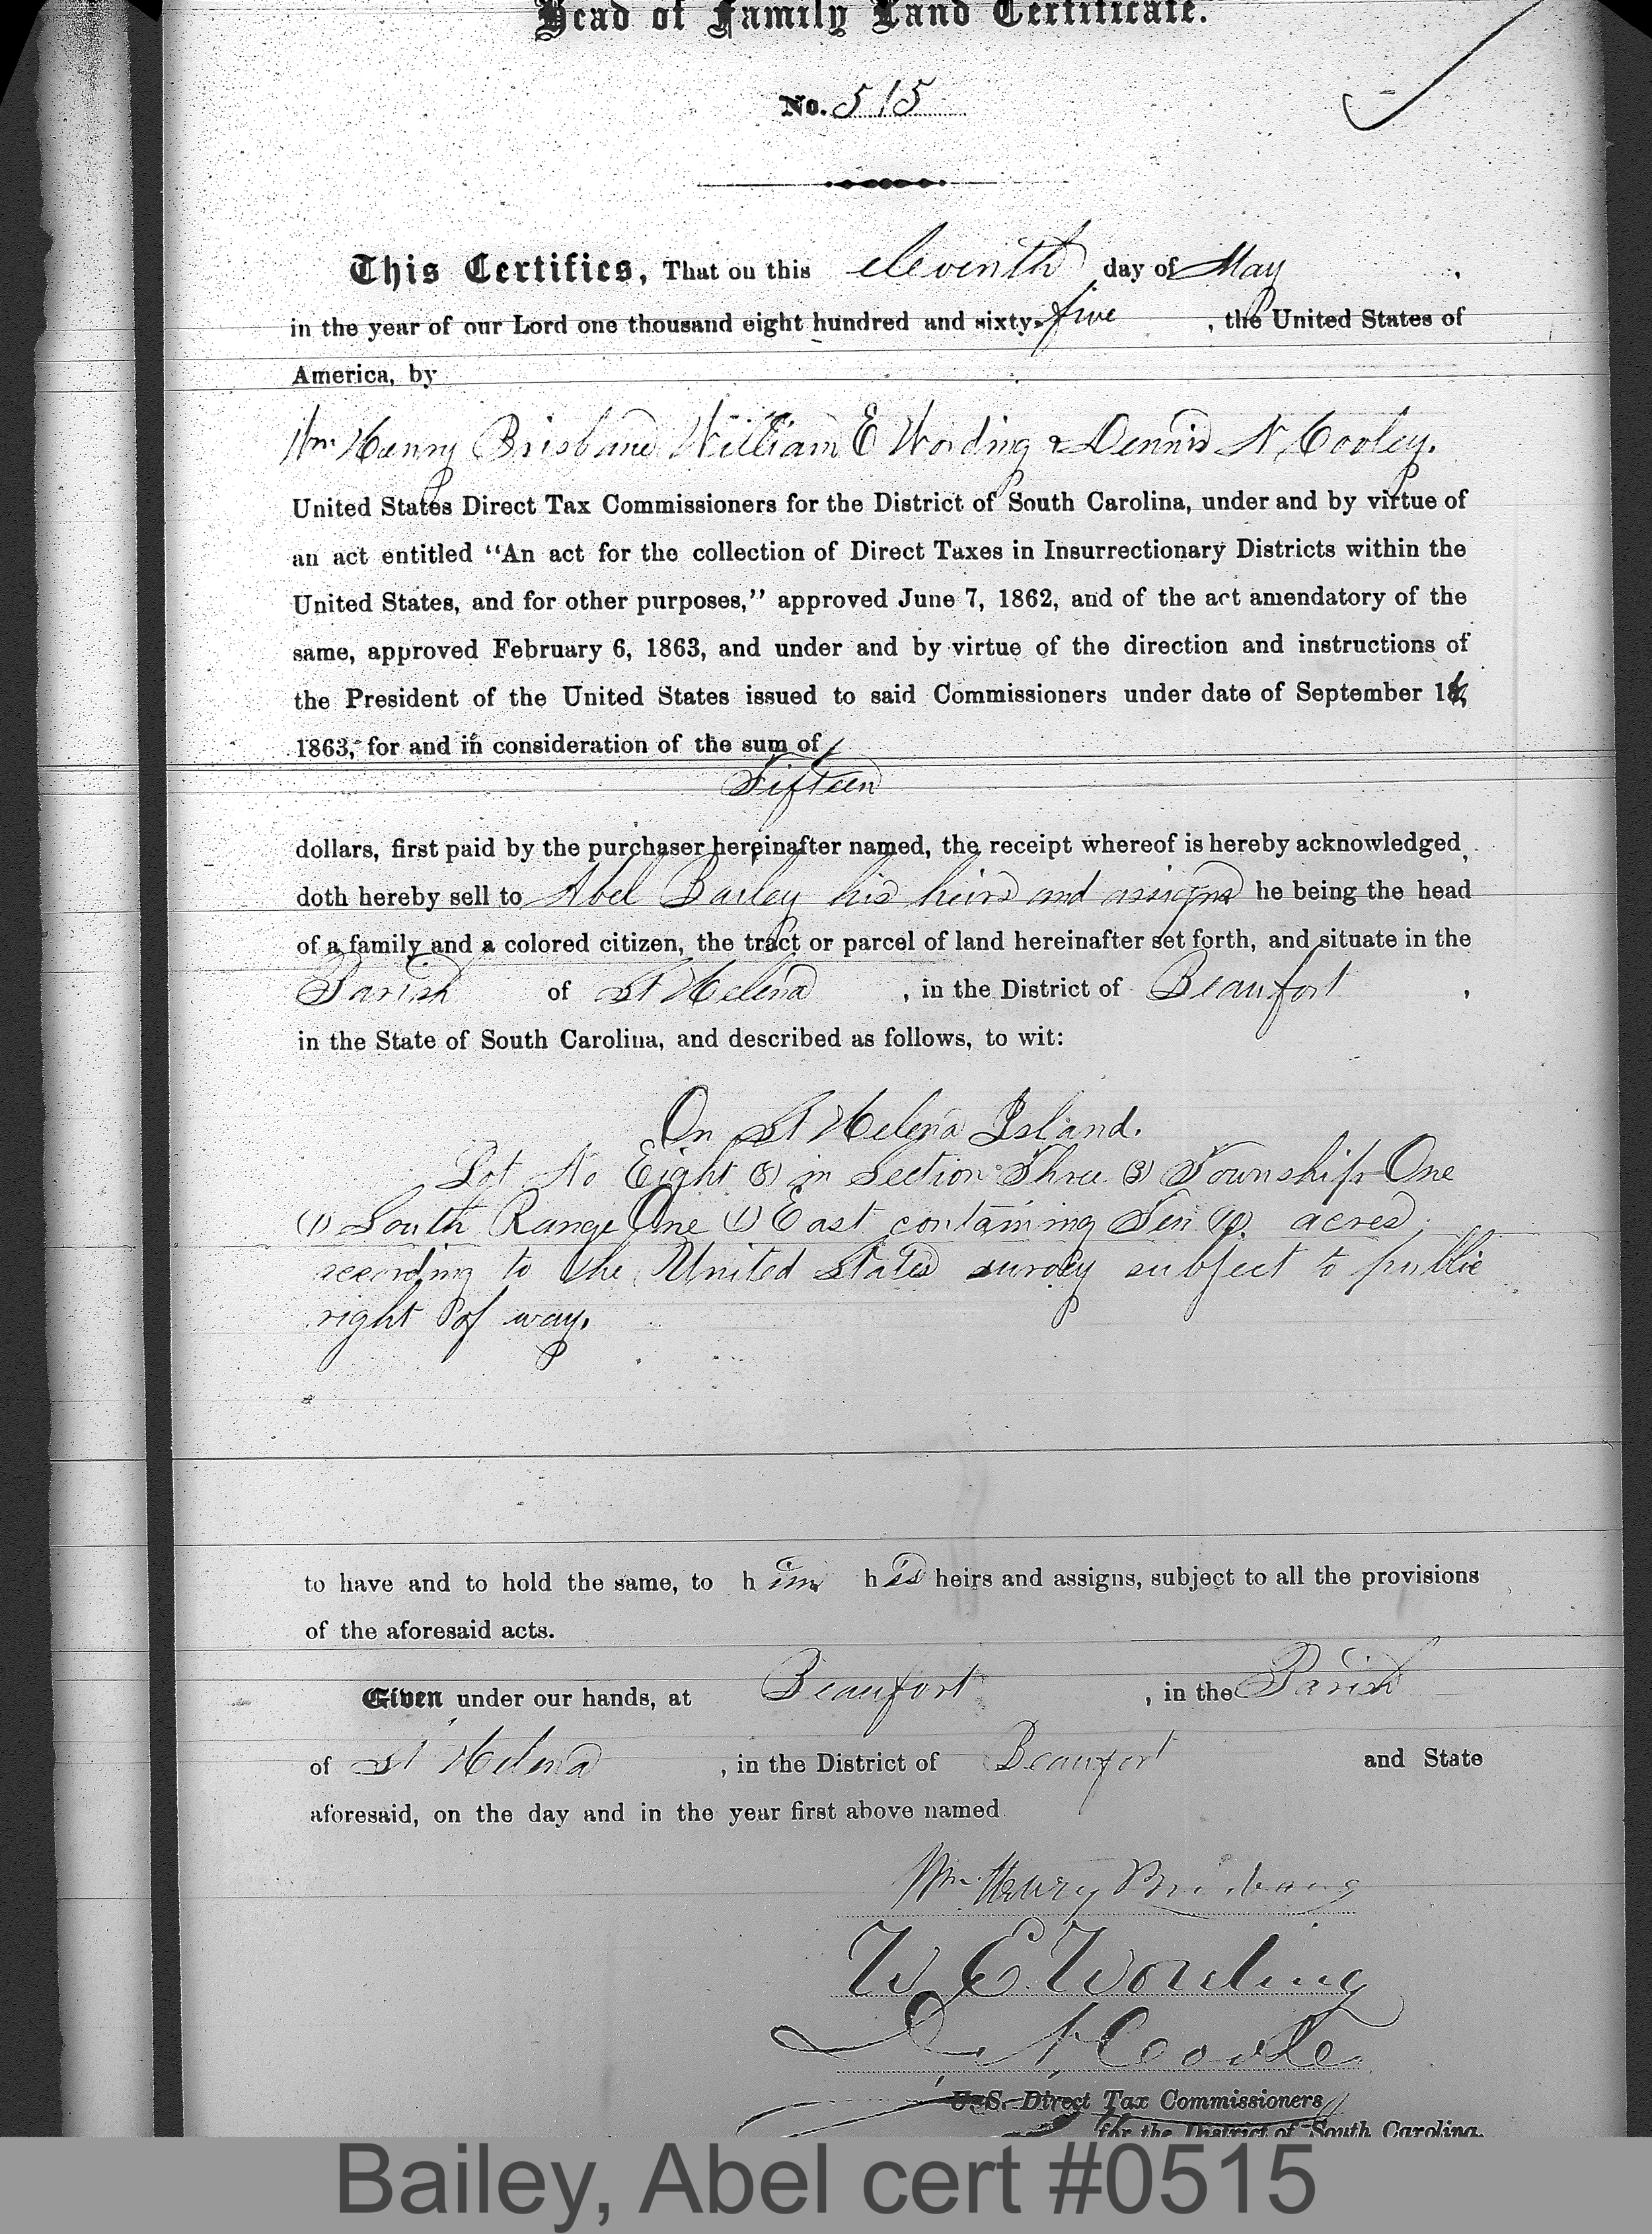 Head of Family Land Certificate.
No. 515
This Certifies, That on this eleventh day of May,
in the year of our Lord one thousand eight hundred and sixty-five, the United States of
America, by
Wm Henry Brisbane William E Wording & Dennis N. Cooley.
United States Direct Tax Commissioners for the District of South Carolina, under and by virtue of
an act entitled "An act for the collection of Direct Taxes in Insurrectionary Districts within the
United States, and for other purposes," approved June 7, 1862, and of the act amendatory of the
same, approved February 6, 1863, and under and by virtue of the direction and instructions of
the President of the United States issued to said Commissioners under date of September
1863, for and in consideration of the sum of
Fifteen
dollars, first paid by the purchaser hereinafter named, the receipt whereof is hereby acknowledged,
doth hereby sell to Abel Bailey his heirs and assigns he being the head
of a family and a colored citizen, the tract or parcel of land hereinafter set forth, and situate in the
Parish of St Helena, in the District of Beaufort,
in the State of South Carolina, and described as follows, to wit:
On St Helena Island.
Lot No Eight (8) in Section Three (3) Township One
(1) South Range One (1) East containing Ten (10) acres
according to the United States survey subject to public
right of way.
to have and to hold the same, to him his heirs and assigns, subject to all the provisions
of the aforesaid acts.
Given under our hands, at Beaufort, in the Parish
of St Helena, in the District of Beaufort and State
aforesaid, on the day and in the year first above named.
Wm. Henry Brisbane
W E Wording
D N Cooley
U. S. Direct Tax Commissioners
for the District of South Carolina.
Bailey, Abel cert #0515